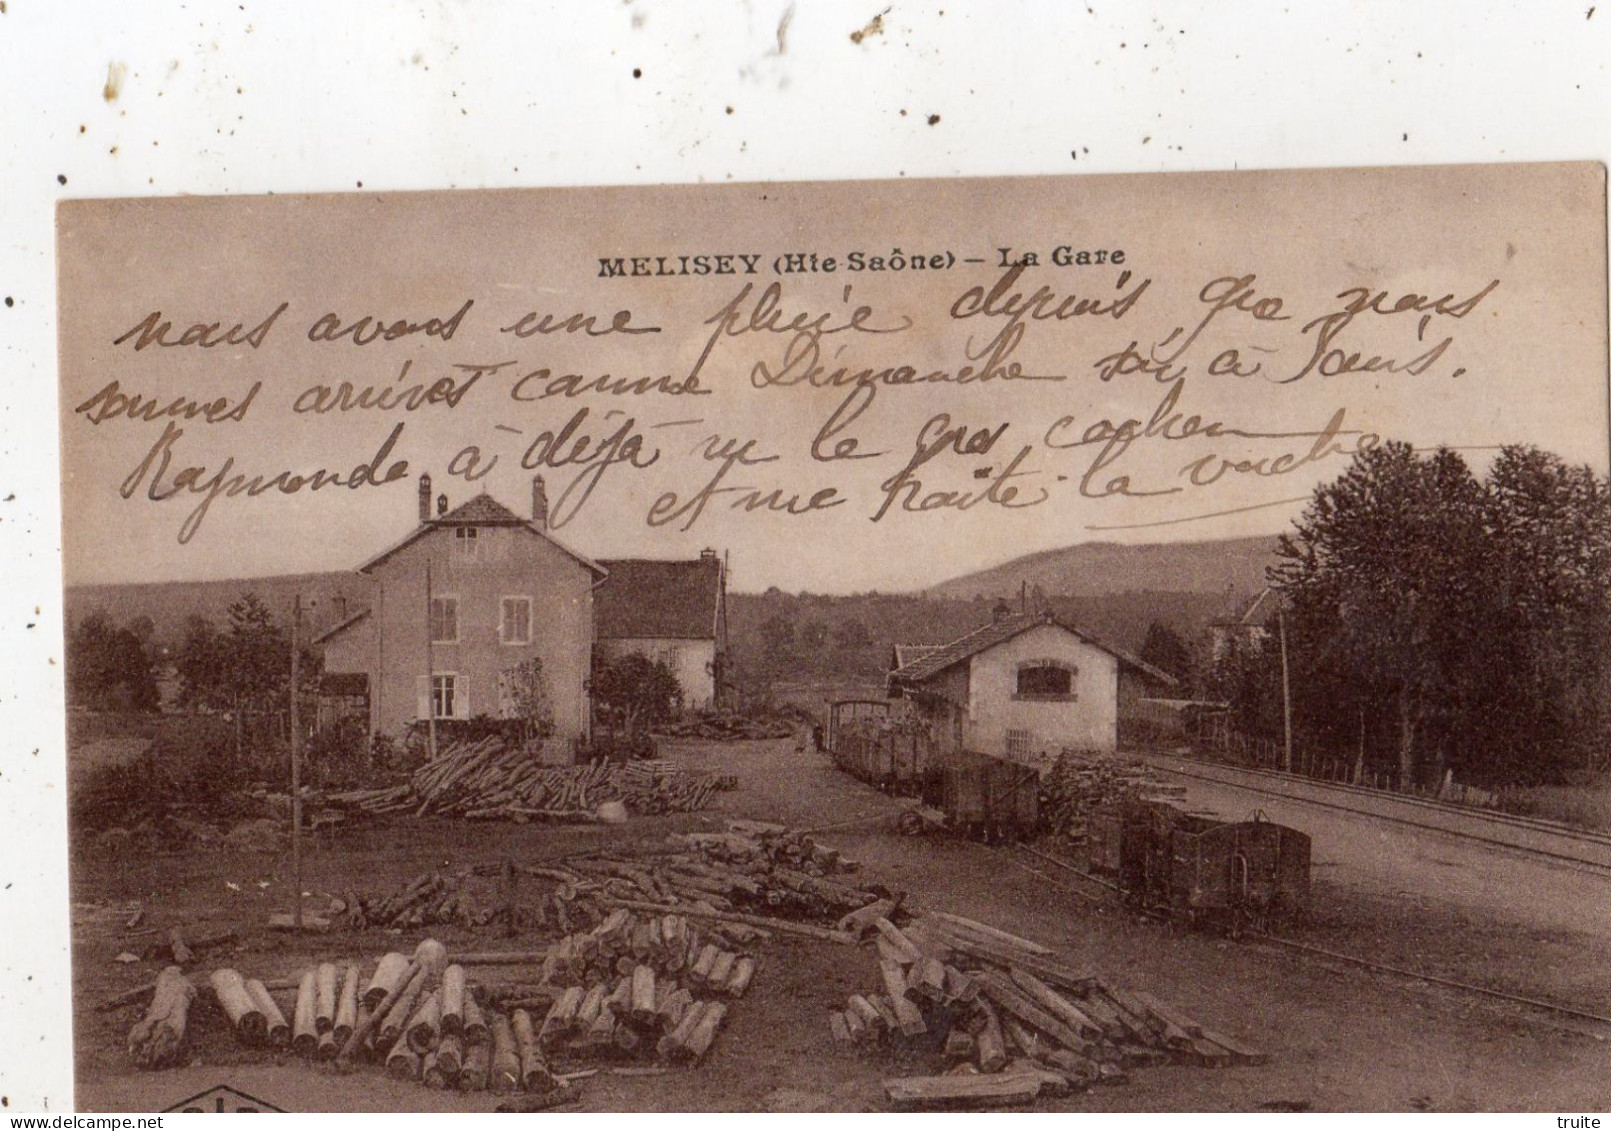 MELISEY (Hte Saône) – La Gare
nous avons une pluie depuis que nous
sommes arrivés comme Dimanche soir à Paris.
Raymonde à déjà vu le gros cochon
et me traite la vache
truite